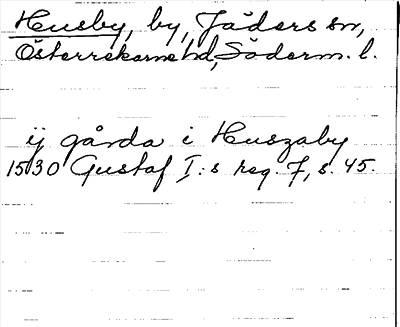 Husby, by, Jäders sn,
Österrekarne hd, Söderm. l.
ij gårda i Huszaby
1530 Gustaf I:s reg. 7, s. 45.